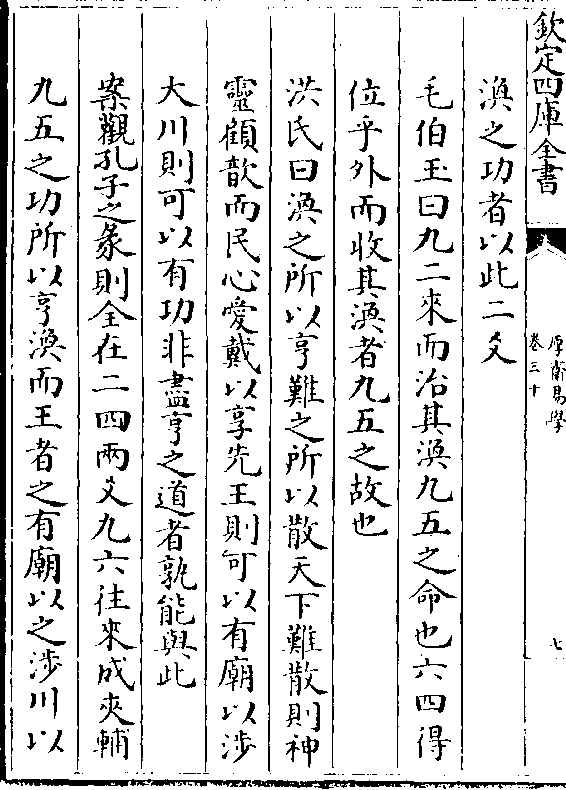 欽定四庫全書
厚齋易學
卷三十
七
渙之功者以此二爻
毛伯玉曰九二來而治其渙九五之命也六四得
位乎外而收其渙者九五之故也
洪氏曰渙之所以亨難之所以散天下難散則神
靈顧歆而民心愛戴以享先王則可以有廟以涉
大川則可以有功非盡亨之道者孰能與此
案觀孔子之彖則全在二四兩爻九六往來成夾輔
九五之功所以亨渙而王者之有廟以之涉川以